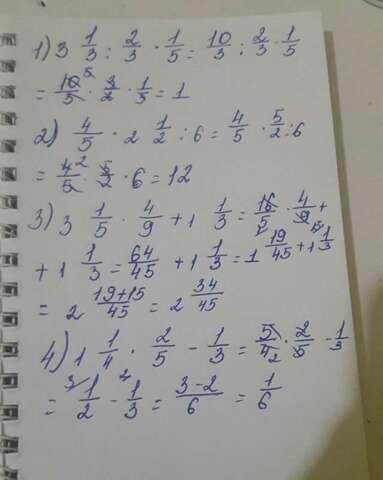 1) 3 1/3 : 2/3 · 1/5 = 10/3 : 2/3 · 1/5
= 10/5 · 3/2 · 1/5 = 1
2) 4/5 · 2 1/2 : 6 = 4/5 · 5/2 : 6
= 4/5 · 5/2 · 6 = 12
3) 3 1/5 · 4/9 + 1 1/3 = 16/5 · 4/9 +
+ 1 1/3 = 64/45 + 1 1/3 = 1 19/45 + 1 1/3
= 2 19+15/45 = 2 34/45
4) 1 1/4 · 2/5 - 1/3 = 5/4 · 2/5 - 1/3
= 1/2 - 1/3 = 3-2/6 = 1/6